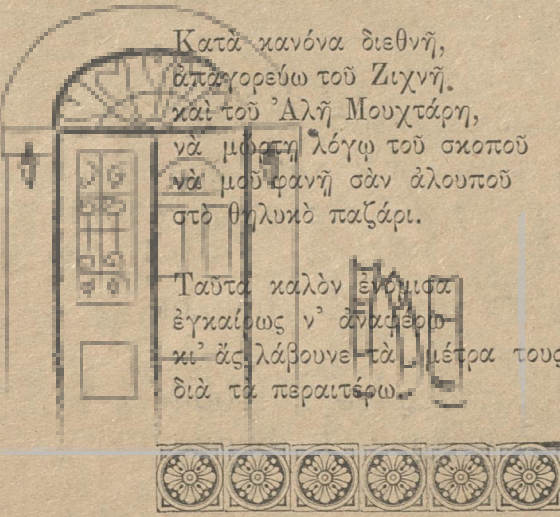 Κατὰ κανόνα διεθνῆ,
ἀπαγορεύω τοῦ Ζιχνῆ
καὶ τοῦ Ἀλῆ Μουχτάρη,
νὰ μὤρτη λόγῳ τοῦ σκοποῦ
νὰ μοῦ φανῆ σὰν ἀλουποῦ
στὸ θηλυκὸ παζάρι.
Ταῦτα καλὸν ἐνόμισα
ἐγκαίρως ν' ἀναφέρω
κι' ἄς λάβουνε τὰ μέτρα τους
διὰ τὰ περαιτέρω.